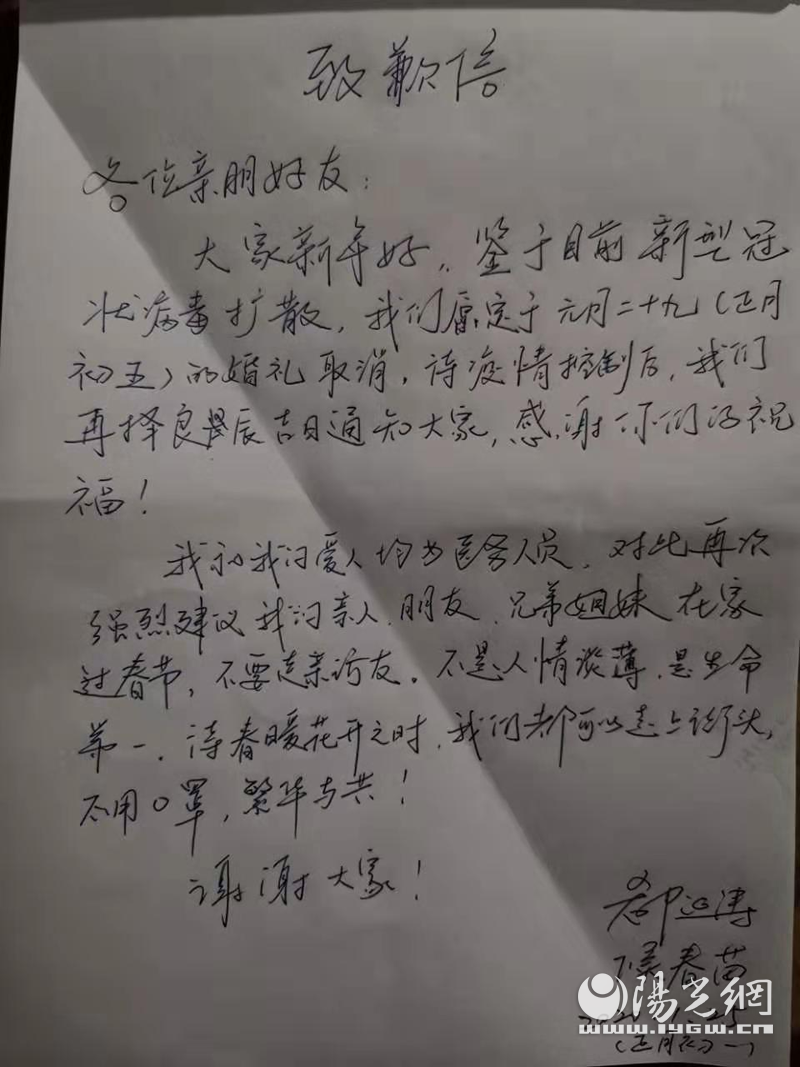 致歉信
各位亲朋好友:
大家新年好,鉴于目前新型冠
状病毒扩散,我们原定于元月二十九(正月
初五)的婚礼取消,待疫情控制后,我们
再择良辰吉日通知大家,感谢你们的祝
福!
我和我的爱人均为医务人员,对此再次
强烈建议我的亲人、朋友、兄弟姐妹在家
过春节,不要走亲访友。不是人情淡薄,是生命
第一。待春暖花开之时,我们都可以走上街头,
不用口罩,繁华与共!
谢谢大家!
郗
春苗
2020.1.25
(正月初一)
陽光網
www.iygw.cn